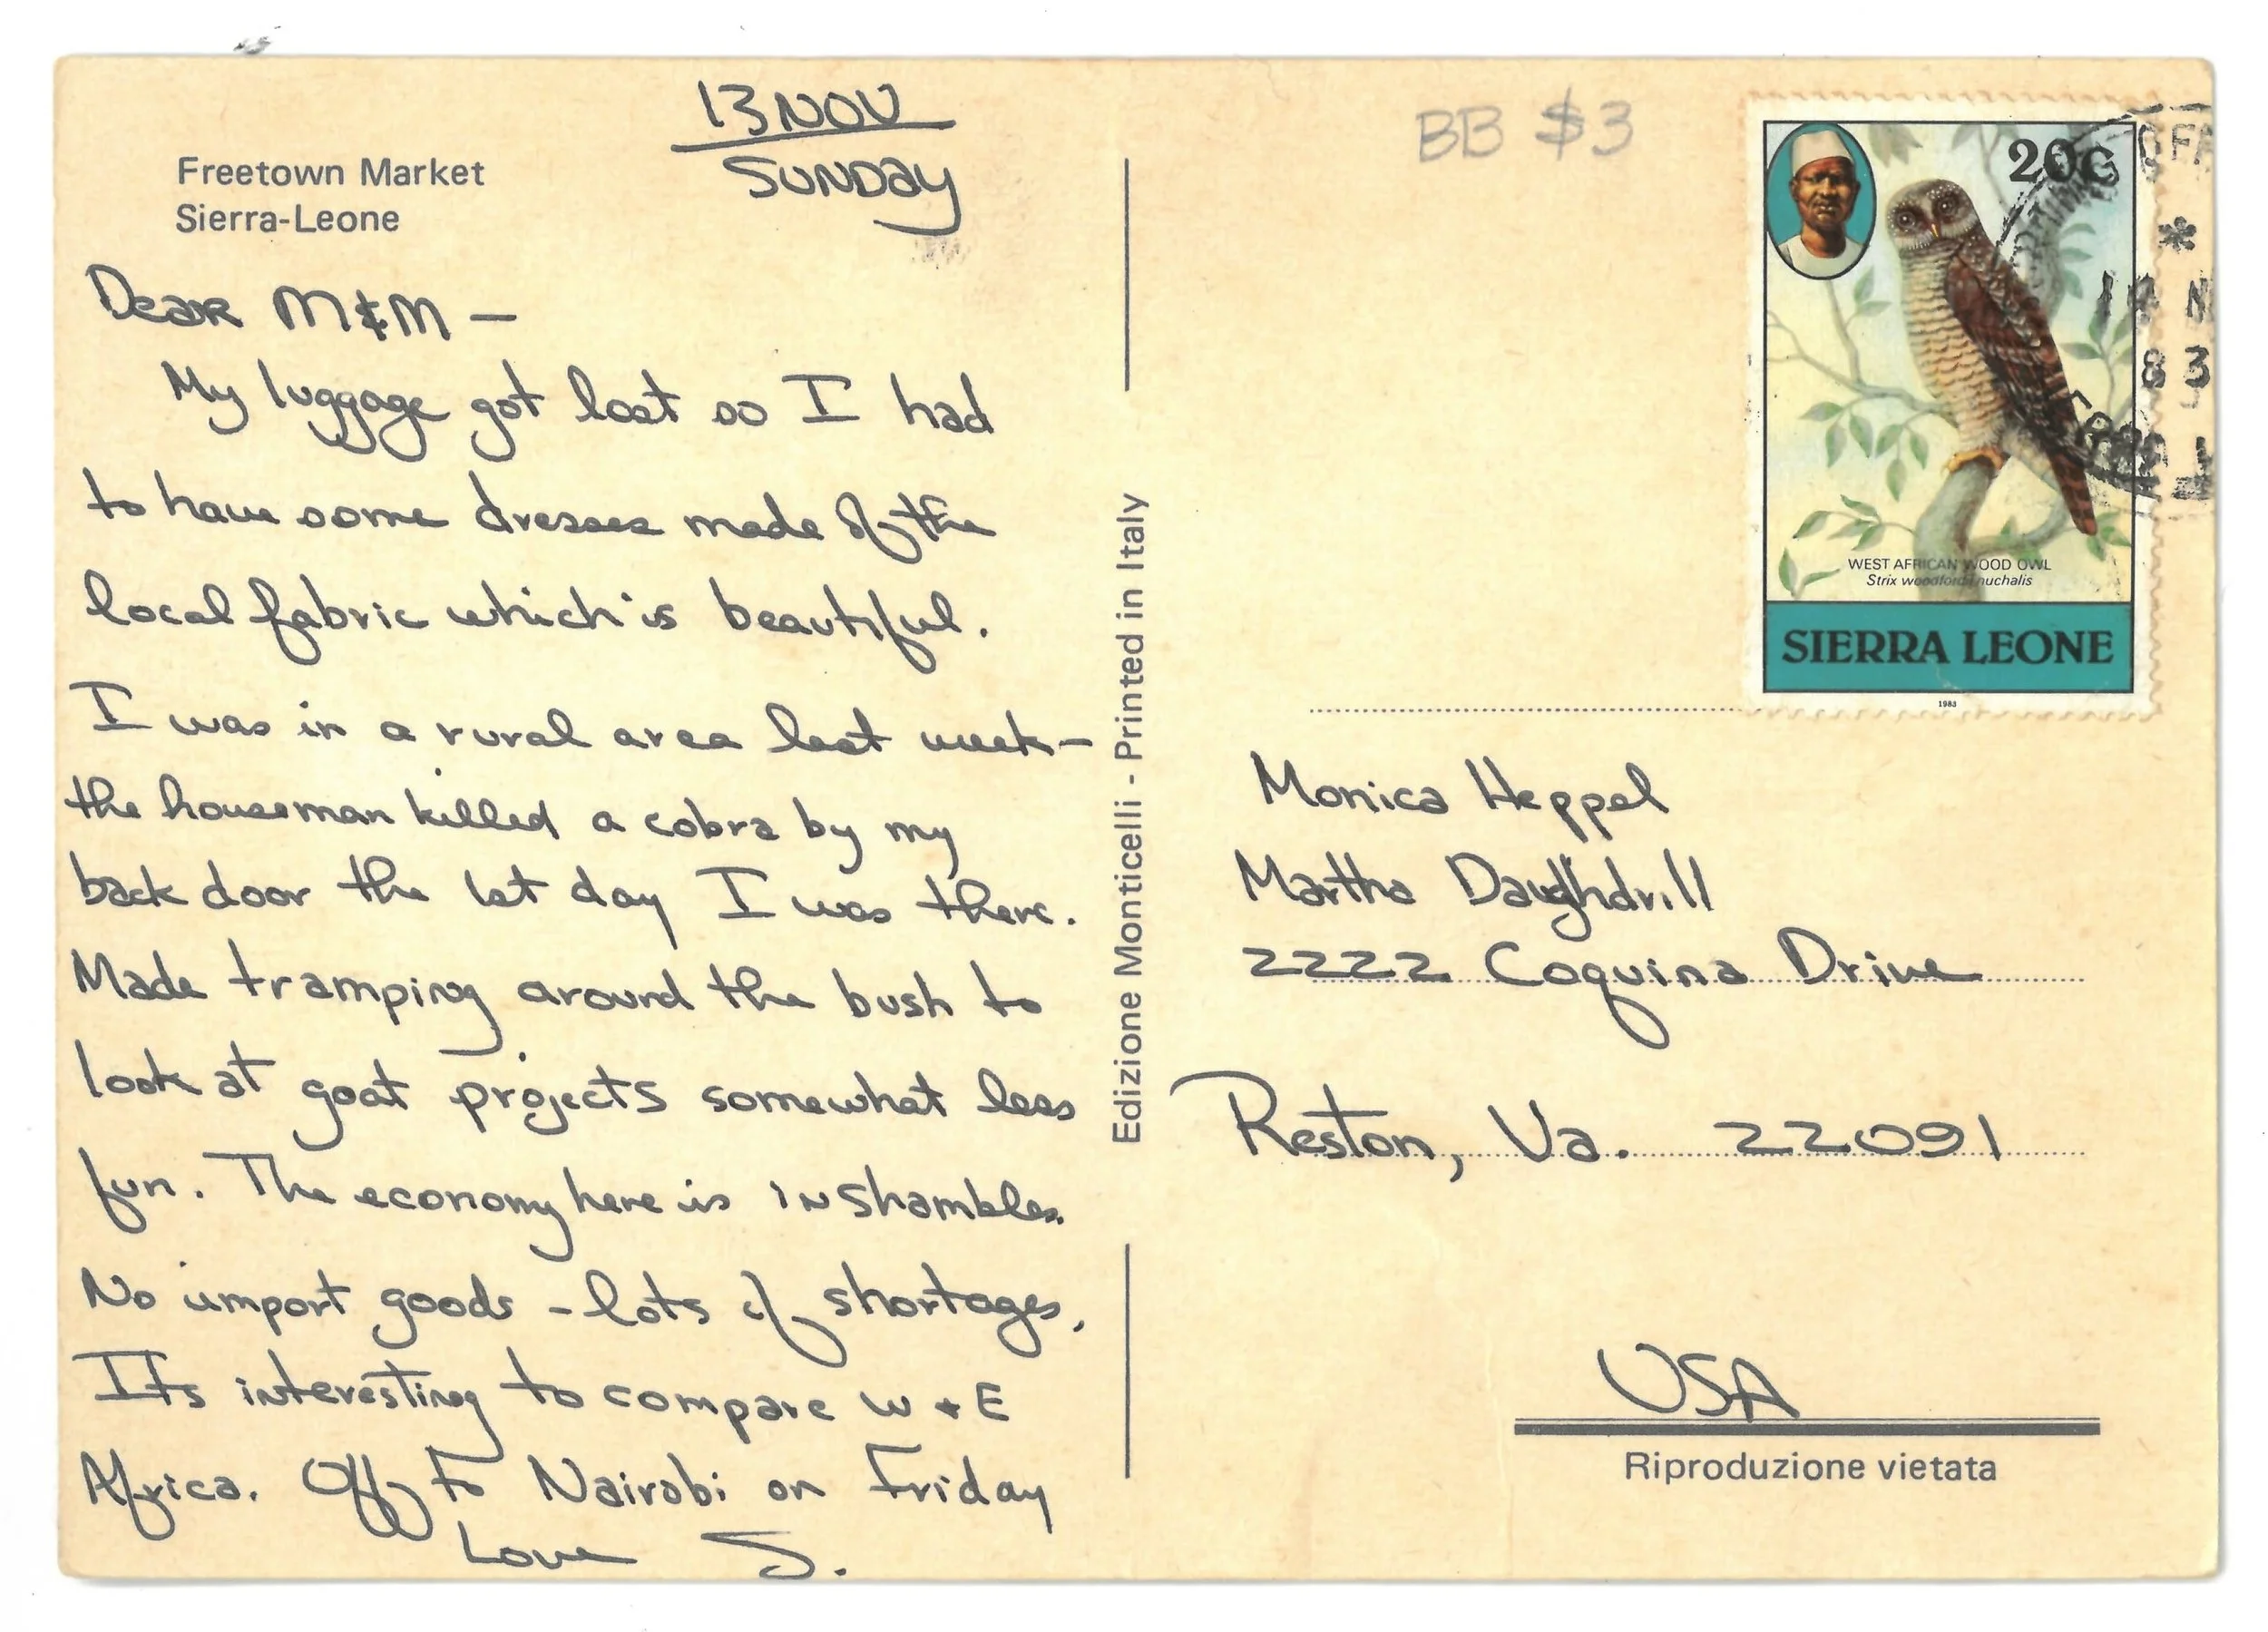 13 NOV
SUNDAY
Freetown Market
Sierra-Leone
Dear M & M —
My luggage got lost so I had
to have some dresses made of the
local fabric which is beautiful.
I was in a rural area last week —
the houseman killed a cobra by my
back door the lst day I was there.
Made tramping around the bush to
look at goat projects somewhat less
fun. The economy here is in shambles.
No import goods - lots of shortages.
Its interesting to compare W + E
Africa. Off to Nairobi on Friday
Love S.
Edizione Monticelli - Printed in Italy
BB $3
20c
WEST AFRICAN WOOD OWL
Strix woodfordi nuchalis
SIERRA LEONE
1983
*
14 N
83
Monica Heppel
Martha Daughdrill
2222 Coquina Drive
Reston, Va. 22091
USA
Riproduzione vietata